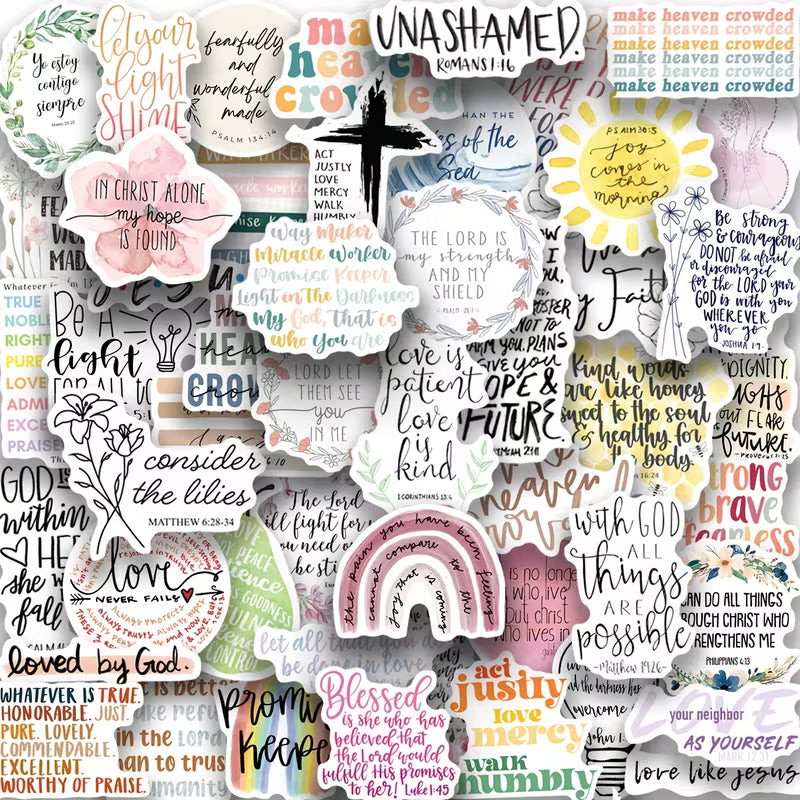 Yo estoy
contigo
siempre
let your
light
SHINE
fearfully
and
wonderfully
made
PSALM 134:14
ma
heaven
crowded
UNASHAMED.
ROMANS 1:16
make heaven crowded
make heaven crowded
make heaven crowded
make heaven crowded
make heaven crowded
make heaven crowded
WERE
ACT
JUSTLY
LOVE
MERCY
WALK
HUMBLY
HAN THE
es of the
Sea
PSALM 30:5
joy
comes in
the
morning
IN CHRIST ALONE
my hope
IS FOUND
FEA
WO
MADE
Way Maker
Miracle Worker
Promise Keeper
Light in the Darkness
My God, that is
who you are
THE LORD IS
my strength
AND MY
SHIELD
PSALM 28:7
Be strong
& courageous
DO NOT be afraid
or discouraged
for the LORD your
GOD is with you
WHEREVER
you go
JOSHUA 1:9
Whatever is
TRUE
NOBLE
RIGHT
PURE
LOVE
ADMI
EXCE
PRAISE
BE A
light
FOR ALL TO
HEA
CROW
LORD LET
THEM SEE
you
IN ME
love is
patient
love
is
kind
1 CORINTHIANS 13:4
NOT TO
HARM YOU, PLANS
GIVE YOU
HOPE &
FUTURE.
Kind words
are like honey
sweet to the soul
& healthy for
the body
16:24
DIGNITY.
OUT FEAR
future.
PROVERBS
consider
the lilies
MATTHEW 6:28-34
GOD IS
within
HER
she w
fall
The Lord
ill fight for
you need o
be sti
heaven
strong
brave
fearless
love
NEVER FAILS
ALWAYS PROTECTS
PEACE
GOODNESS
CONTROL
the pain you have been feeling
cannot compare to the
joy that is coming
is no longer
who live,
but christ
who lives in
with GOD
ALL
things
ARE
possible
Matthew 19:26
CAN DO ALL THINGS
THROUGH CHRIST WHO
STRENGTHENS ME
PHILIPPIANS 4:13
let all that you d
be done in love
loved by God.
WHATEVER IS TRUE.
HONORABLE. JUST.
PURE. LOVELY.
COMMENDABLE.
EXCELLENT.
WORTHY OF PRAISE.
is better
ake refu
in the Lord
han to trus
umanity
promi
keepe
Blessed
is she who has
believed that
the Lord would
fulfill His promises
to her! Luke 1:45
act
justly
love
mercy
walk
humbly
and the darkness has
overcome
John 1:
LOVE
your neighbor
AS YOURSELF
MARK 12:31
love like jesus